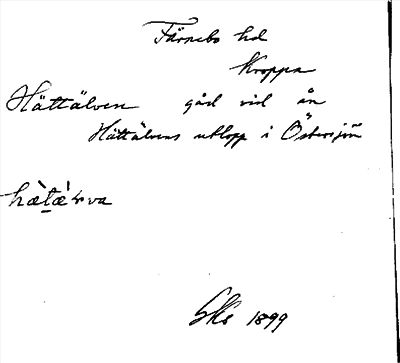 Färnebo hd
Kroppa
Hättälven gård vid ån
Hättälvens utlopp i Östersjön
hæ̀tæ̀rva
1899